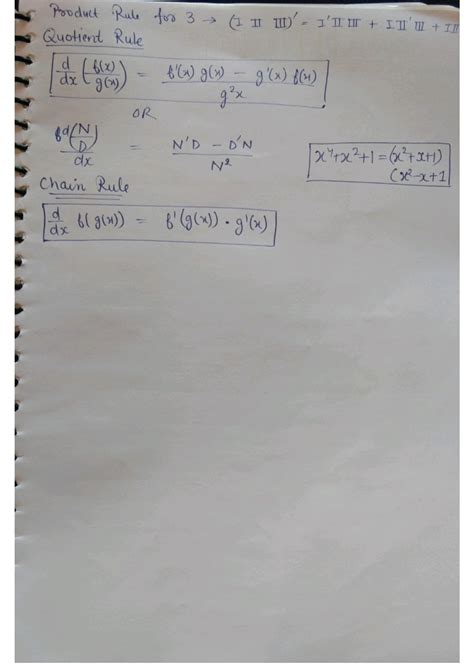 Product Rule for 3 → (I II III)' = I'II III + I II' III + I II
Quotient Rule
d/dx (f(x)/g(x)) = f'(x) g(x) - g'(x) f(x) / g²x
OR
d(N/D)/dx = N'D - D'N / N²
x⁴+x²+1 = (x²+x+1)
(x²-x+1
Chain Rule
d/dx f(g(x)) = f'(g(x)) · g'(x)